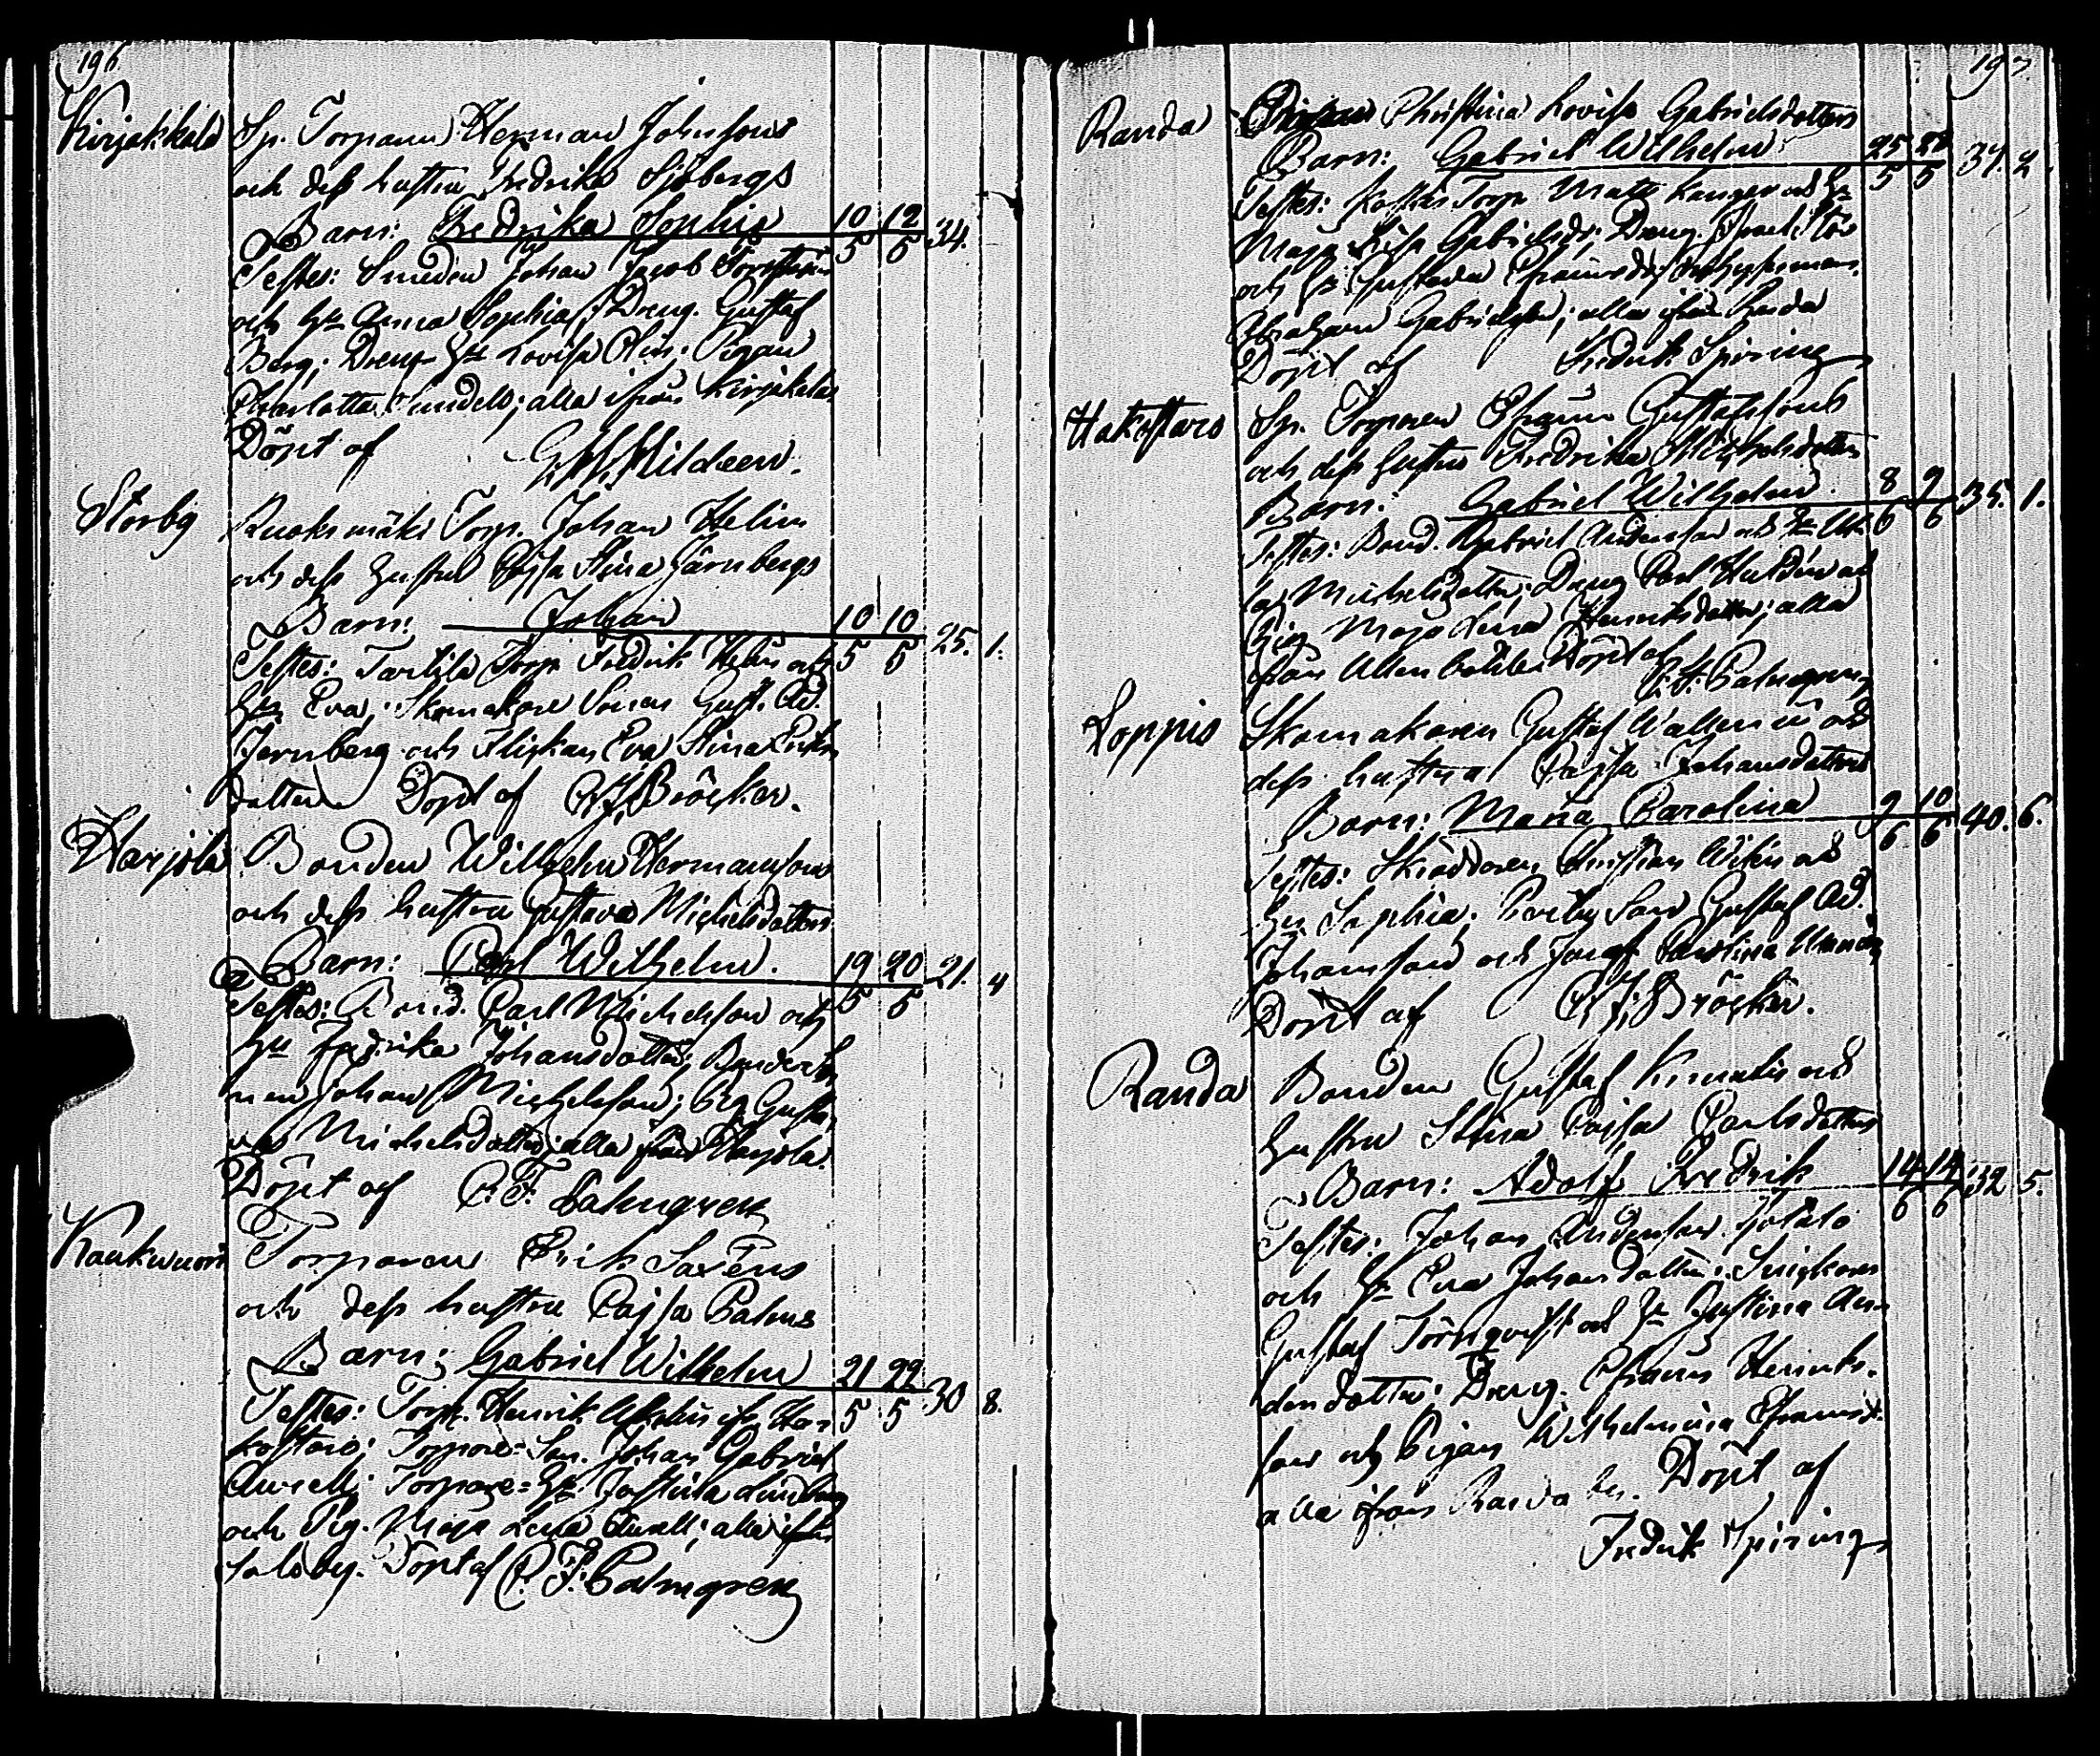 196
Kirjakkala Sp. Torparen Herman Johnssons
och dess hustru Fredrika Sjöbergs
Barn: Fredrika Sophia 10/5 12/5 34.
Testes: Smeden Johan Jacob
och Hu Anna Sophia; Dreng. Gustaf
Berg; Dreng Hu Lovisa; Pigan
Charlotta Sundell; alla ifrån Kirjakkala
Döpt af G. W. Mildeen.
Storby Ruoksmäki Torp. Johan Helin
och dess hustru Cajsa Stina Järnbergs
Barn: Johan 10/5 10/5 25. 1.
Testes: Torp. Fredrik Helin och
Hu Eva; Skomakare Sonen Gust. Ad.
Jernberg och Flickan Eva Stina Eriks
dotter Döpt af C. J. Bröcker.
Harjola Bonden Wilhelm Hermanssons
och dess hustru Gustava Michelsdotters
Barn: Carl Wilhelm. 19/5 20/5 21. 4
Testes: Bond. Carl Michelsson och
Hu Fredrika Johansdotter; Bonde
Johan Michelsson; Pig Gusta
va Michelsdotter; alla från Harjola.
Döpt af C. F. Palmgren
Kaukwuori Torparen Erik Saxéns
och dess hustru Cajsa Palms
Barn: Gabriel Wilhelm 21/5 22/5 30 8.
Testes: Torp. Henrik ifr. Ha
kostaro; Torpare-Son. Johan Gabriel
Aurell; Torpare-Hu Justina Lindberg
och Pig. Maja Lena Aurell; alla ifrån
Saloby. Döpt af C. F. Palmgren
197.
Randa Pigan Christina Lovisa Gabrielsdotters
Barn: Gabriel Wilhelm 25/5 /5 37. 2.
Testes: Torp Matts och Hu
Maja Lisa Gabrielsdr; Dreng. Israel
och Hu Gustava Efraimsdr;
Abraham Gabrielsson; alla ifrån Randa
Döpt af Fredrik Spiring
Hakostaro Sp. Torparen Efraim Gustafssons
och dess hustru Fredrika Michelsdotters
Barn: Gabriel Wilhelm. 8/6 9/6 35. 1.
Testes: Bond. Gabriel Andersson och Hu Ul
la Michelsdotter; Dreng Carl och
Pig Maja Lena Henriksdotter; alla
från Döpt af C. F. Palmgren
Loppio Skomakaren Gustaf Wallenii och
dess hustru Cajsa Johansdotters
Barn: Maria Carolina 9/6 10/6 40. 6.
Testes: Skräddaren Christian Wikin och
Hu Sophia; Son Gustaf Ad.
Johansson och Jungf. Carolina
Döpt af C. J. Bröcker.
Randa Bonden Gustaf och
hustru Stina Cajsa Carlsdotters
Barn: Adolf Fredrik 14/6 14/6 32 5.
Testes: Johan Andersson
och Hu Eva Johansdotter; Snickaren
Gustaf Törnqvist och Hu Justina
dotter; Dreng. Efraim Henriks-
son och Pigan Wilhelmina Efraimsdr.
alla ifrån Randa by. Döpt af
Fredrik Spiring